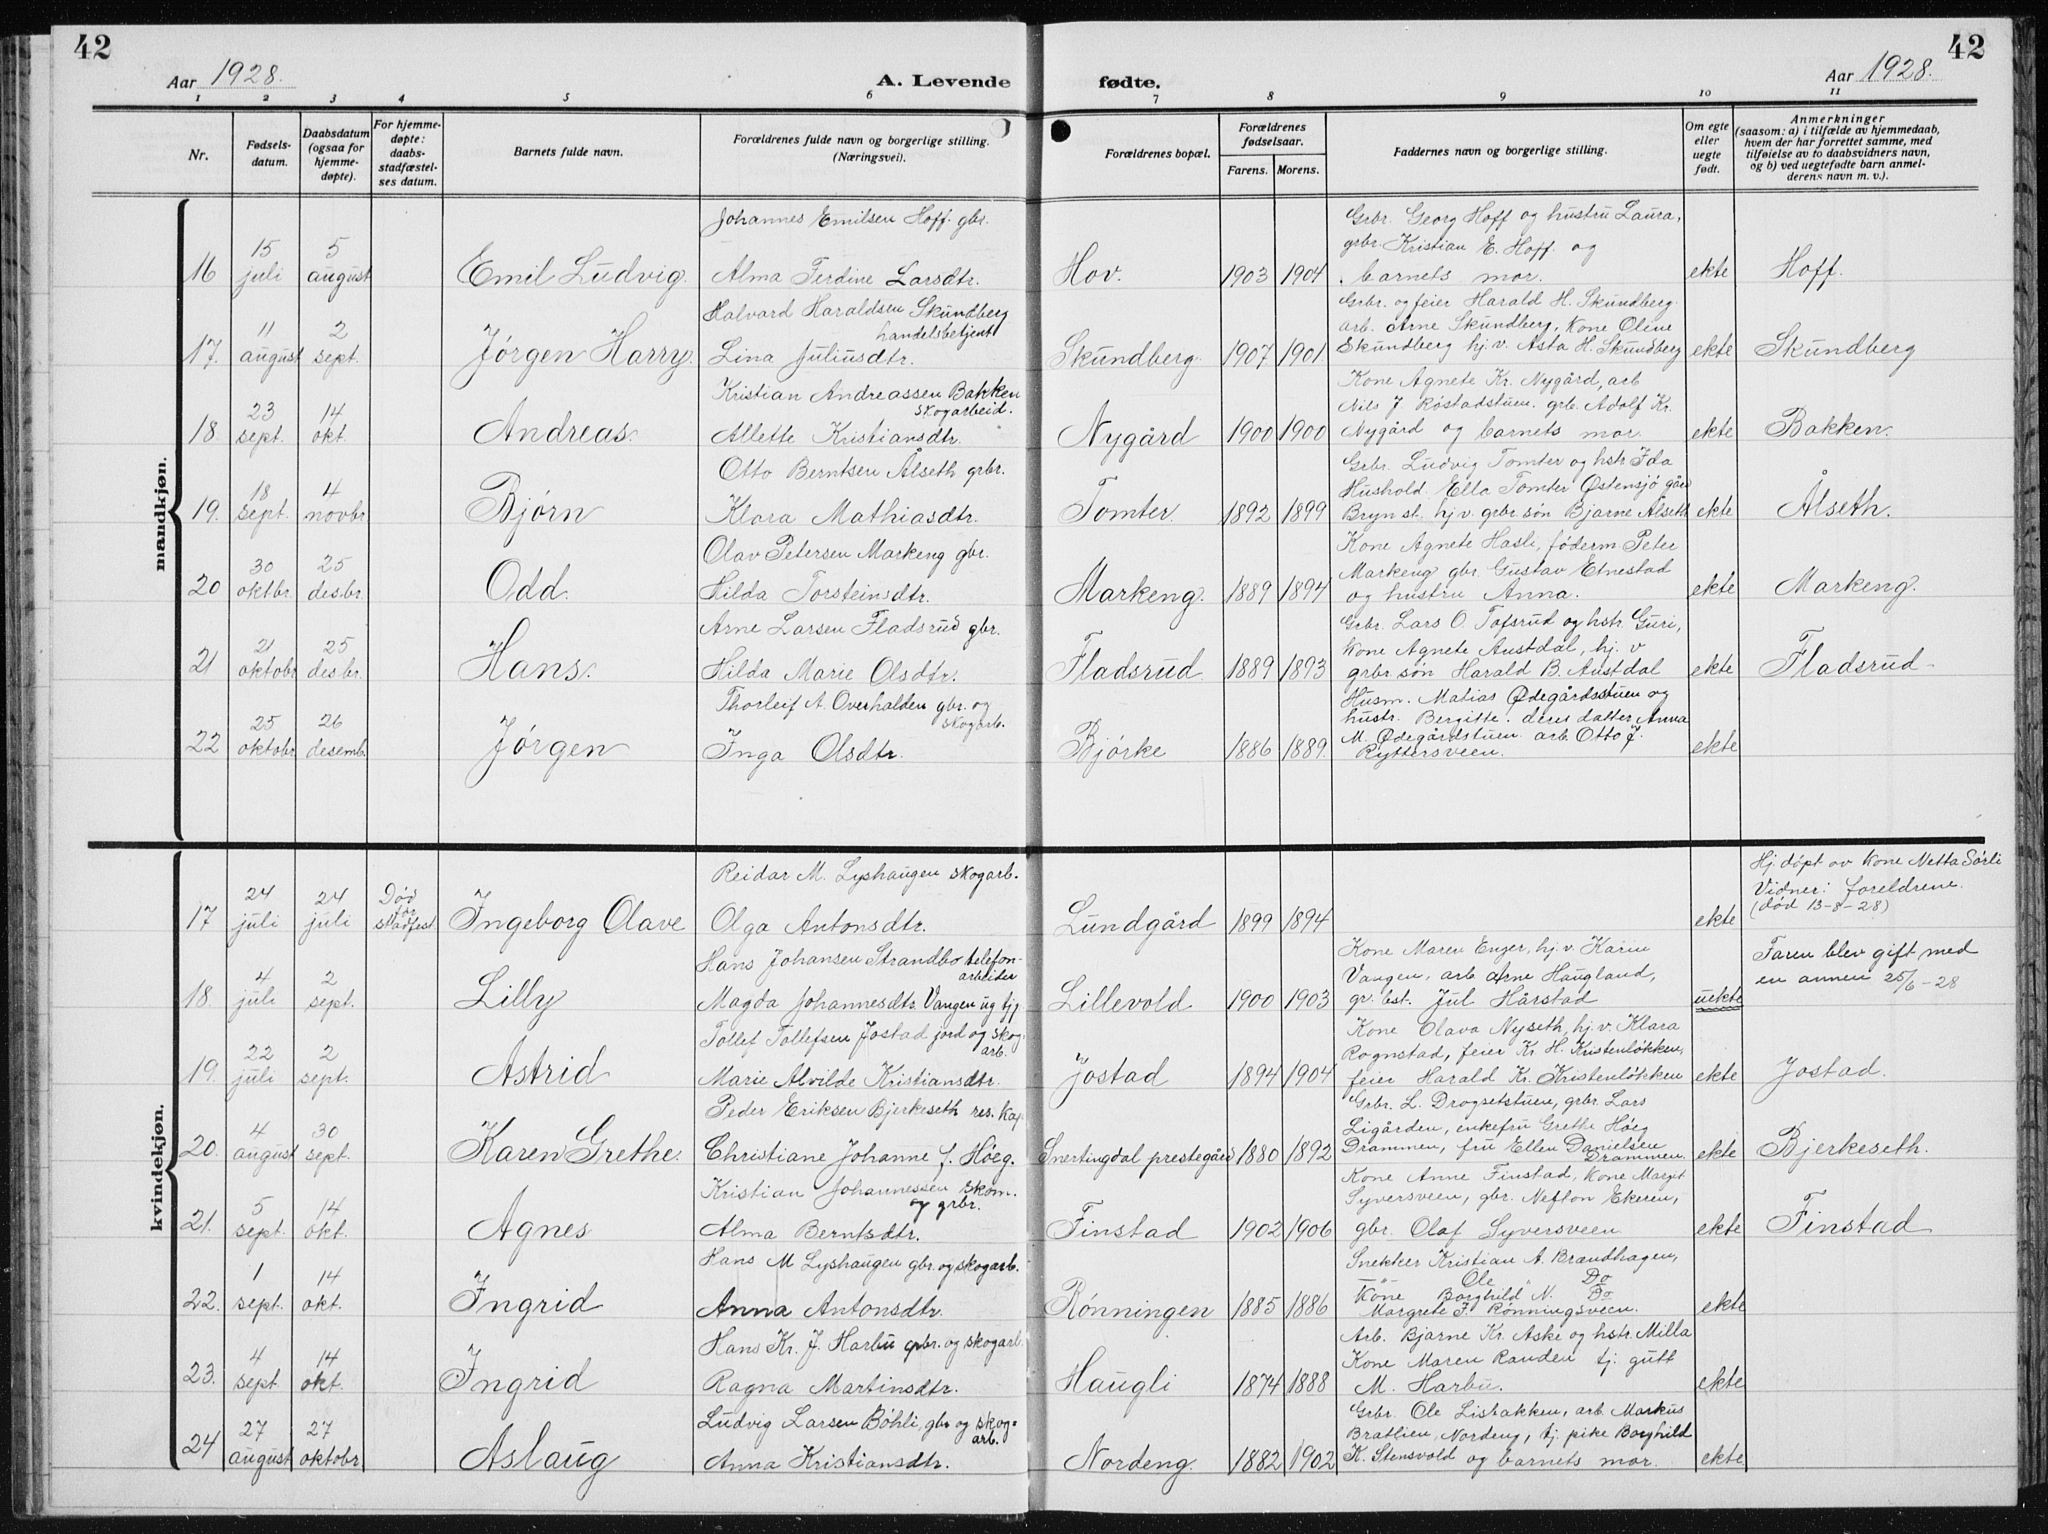 42
Aar 1928.
A. Levende
fødte.
Aar 1928.
42
1 2 3 4 5 6 7 8 9 10 11
Nr.
Fødsels-
datum.
Daabsdatum
(ogsaa for
hjemme-
døpte).
For hjemme-
døpte:
daabs-
stadfæstel-
ses datum.
Barnets fulde navn.
Forældrenes fulde navn og borgerlige stilling.
(Næringsvei).
Forældrenes bopæl.
Forældrenes
fødselsaar.
Farens. Morens.
Faddernes navn og borgerlige stilling.
Om egte
eller
uegte
født.
Anmerkninger
(saasom: a) i tilfælde av hjemmedaab,
hvem der har forrettet samme, med
tilføielse av to daabsvidners navn,
og b) ved uegtefødte barn anmel-
derens navn m. v.).
mandkjøn.
16
15
juli
5
august
Emil Ludvig.
Johannes Emilsen Hoff. gbr.
Alma Ferdine Larsdtr.
Hov.
1903 1904
Grbr. Georg Hoff og hustru Laura,
grbr. Kristian E. Hoff og
barnets mor.
ekte
Hoff.
17.
11
august
2
sept.
Jörgen Harry.
Halvard Haraldsen Skundberg
handelsbetjent
Lina Juliusdtr.
Skundberg.
1907 1901
Grbr. og feier Harald H. Skundberg.
arb. Arne Skundberg, Kone Oline
Skundberg hj.v. Asta H. Skundberg
ekte
Skundberg
18.
23
sept.
14
okt.
Andreas.
Kristian Andreassen Bakken
skogarbeid.
Allette Kristiansdtr.
Nygård
1900 1900
Kone Agnete Kr. Nygård, arb
Nils J. Röstadstuen. grb. Adolf Kr.
Nygård og barnets mor.
ekte
Bakken.
19.
18
sept.
4
novbr
Bjørn
Otto Berntsen Ålseth grbr.
Klara Mathiasdtr.
Tomter.
1892 1899
Grbr. Ludvig Tomter og hstr Ida
Hushold. Ella Tomter Østensjö gård
Bryn st. hj.v. grbr søn Bjarne Ålseth
ekte
Ålseth.
20
30
oktbr.
25
desbr.
Odd.
Olav Petersen Markeng gbr.
Hilda Torsteinsdtr.
Markeng.
1889 1894
Kone Agnete Hasli, föderm. Peter
Markeng gbr. Gustav Etnestad
og hustru Anna.
ekte
Markeng.
21
21
oktobr
25
desbr.
Hans.
Arne Larsen Fladsrud gbr.
Hilda Marie Olsdtr.
Fladsrud
1889 1893
Grbr. Lars O. Tofsrud og hstr. Guri,
Kone Agnete Austdal, hj. v
grbr søn Harald B. Austdal
ekte
Fladsrud
22
25
oktobr
26
desemb.
Jörgen
Thorleif A. Overhalden gbr. og
skogarb.
Inga Olsdtr.
Bjórke
1886 1889.
Husm. Matias Ødegårdsstuen og
hustr. Bergitte. deres datter Anna
M. Ødegårdstuen. arb. Otto J.
Ryttersveen.
ekte
kvindekjøn.
17
24
juli
24
juli
Død
før
stadfest.
Ingeborg Olave
Reidar M. Lyshaugen skogarb.
Olga Antonsdtr.
Lundgård
1899 1894
ekte
Hj. døpt av Kone Netta Sörli
Vidner: foreldrene.
(død 13-8-28)
18.
4
juli
2
sept.
Lilly
Hans Johansen Strandbo telefon-
arbeider
Magda Johannesdtr. Vangen ug tjp.
Lillevold
1900 1903
Kone Maren Enger, hj.v. Karin
Vangen, arb Arne Haugland,
gr. best. Jul Hårstad
uekte
Faren blev gift med
en annen 25/6-28
19.
22
juli
2
sept.
Astrid
Tollef Tollefsen Jostad jord og skog-
arb.
Marie Alvilde Kristiansdtr.
Jostad
1894 1904
Kone Olava Nyseth, hj.v. Klara
Rognstad, feier Kr. H. Kristenlökken,
feier Harald Kr. Kristenlökken
ekte
Jostad.
20.
4
august
30
sept.
Karen Grethe.
Peder Eriksen Bjerkeseth res. Kap
Christiane Johanne f. Høeg.
Snertingdal prestegård
1880 1892
Grbr. L. Drogsetstuen, grbr. Lars
Ligården, enkefru Grethe Høeg
Drammen, fru Ellen Danielsen
Drammen.
ekte
Bjerkeseth.
21.
5
sept.
14
okt.
Agnes
Kristian Johannessen skom.
og grbr.
Alma Berntsdtr.
Finstad
1902 1906
Kone Anne Finstad, Kone Margit
Syversveen, gbr. Nefton Ekeren,
gbr. Olaf Syversveen
ekte
Finstad
22.
1
sept.
14
okt.
Ingrid
Hans M Lyshaugen gbr. og skogarb.
Anna Antonsdtr.
Rönningen
1885 1886
Snekker Kristian A. Brandhagen,
—"— Ole " Do
Kone Borghild N. Do
Margrete F. Rønningsveen.
ekte
23.
4
sept.
14
okt.
Ingrid
Hans Kr. J. Harbu gbr. og skogarb.
Ragna Martinsdtr.
Haugli
1874 1888
Arb. Bjarne Kr. Aske og hstr. Milla
Kone Maren Randen tj. gutt
M. Harbu.
ekte
24
27
august
27
oktobr
Aslaug
Ludvig Larsen Böhli, gbr og skog-
arb.
Anna Kristiansdtr.
Nordeng.
1882 1902
Grbr. Ole Listakken, arb. Markus
Bratlien, Nordeng, tj. pike Borghild
K. Stensvold og barnets mor.
ekte